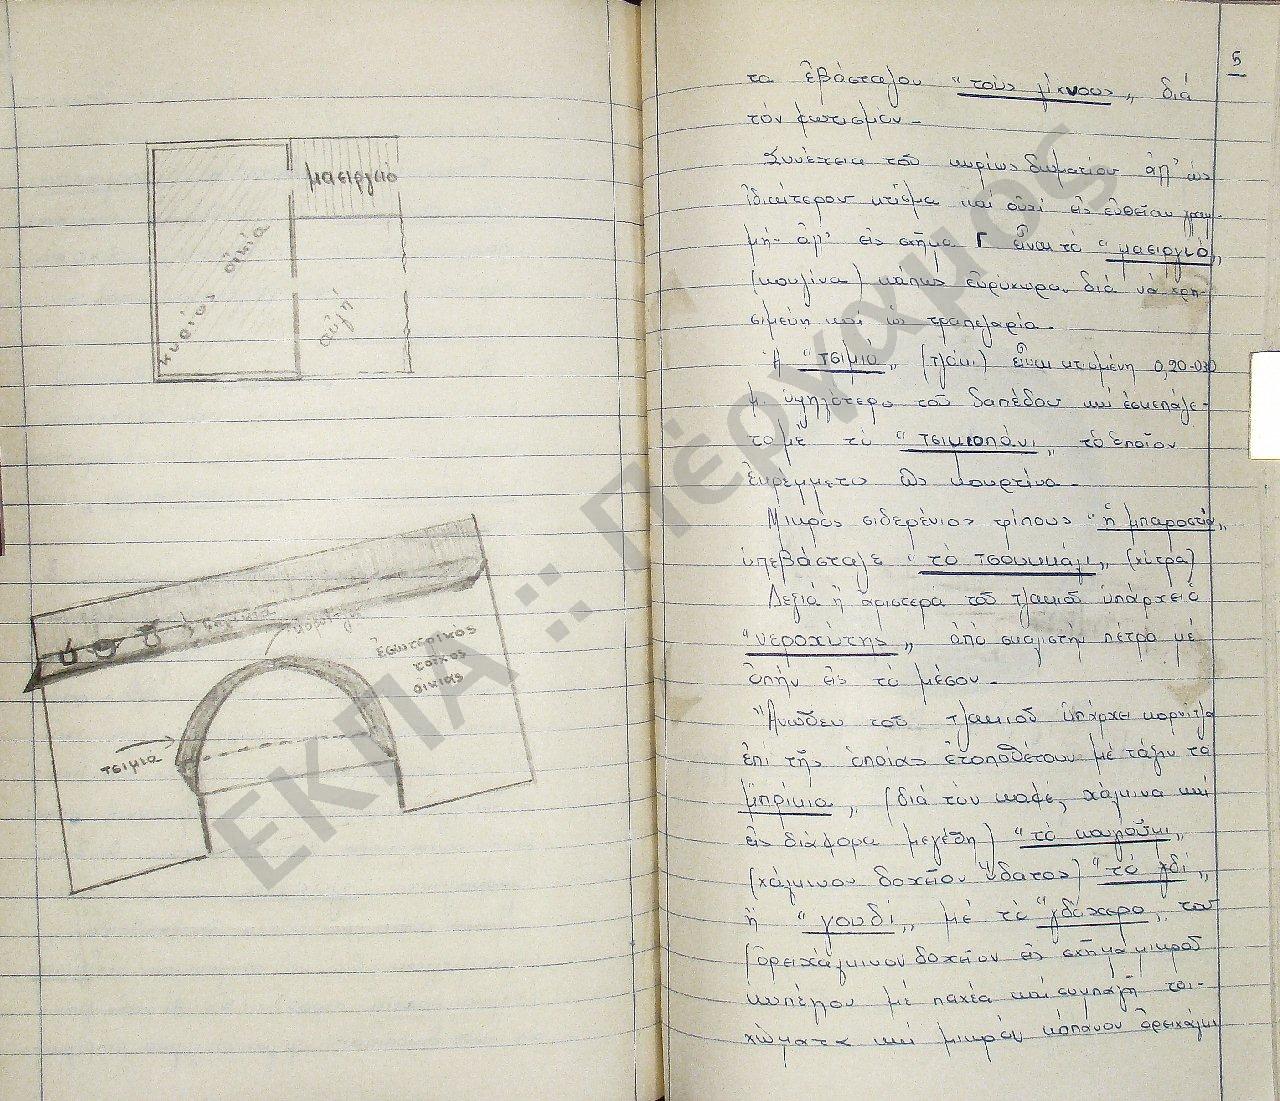 μαειργειό
κυρίως οἰκία
αὐλή
ἐσωτερικός
τοῖχος
οἰκίας
τσιμιά
5
τα ἐβάσταζον "τοὺς λύχνους,, διά
τόν φωτισμόν.-
Συνέπεια τοῦ κυρίως δωματίου ἀλλ' ὡς
ἰδιαίτερον κτίσμα καί οὐχί εἰς εὐθεῖαν γραμ-
μή- ἀλλ' εἰς σχῆμα Γ εἶναι τό "μαειργειό,,
(κουζίνα) κάπως εὐρύχωρον διά νά χρη-
σιμεύῃ καί ὡς τραπεζαρία.-
Ἡ "τσιμιά,, (τζάκι) εἶναι κτισμένη 0,20-030
μ. ὑψηλότερο τοῦ δαπέδου καί ἐσκεπάζε-
το μέ τό "τσιμιοπάνι,, τό ὁποῖον
ἐκρέμμετο ὡς κουρτίνα.-
Μικρός σιδερένιος τρίπους "ἡ μπαροστιά,,
ὑπεβάσταζε "τό τσουκκάλι,, (χύτρα)
Δεξιά ἤ ἀριστερά τοῦ τζακιοῦ ὑπάρχει ὁ
"νεροχύτης,, ἀπό σκαλιστήν πέτρα μέ
ὀπήν εἰς τό μέσον.-
Ἄνωθεν τοῦ τζακιοῦ ὑπάρχει κορνίζα
ἐπί τῆς ὁποίας ἐτοποθέτουν μέ τάξιν τα
μπρίκια,, (διά τόν καφέ, χάλκινα καί
εἰς διάφορα μεγέθη) "τό καζοῦκι,,
(χάλκινον δοχεῖον ὕδατος) "τό γδί,,
ἤ "γουδί,, μέ τό "γδόχερο,, του
(ὀρειχάλκινον δοχεῖον εἰς σχῆμα μικροῦ
κυπέλου μέ παχέα καί συμπαγῆ τοι-
χώματα καί μικρόν κόπανον ὀρειχάλκι
ΕΚΠΑ :: Πέργαμος